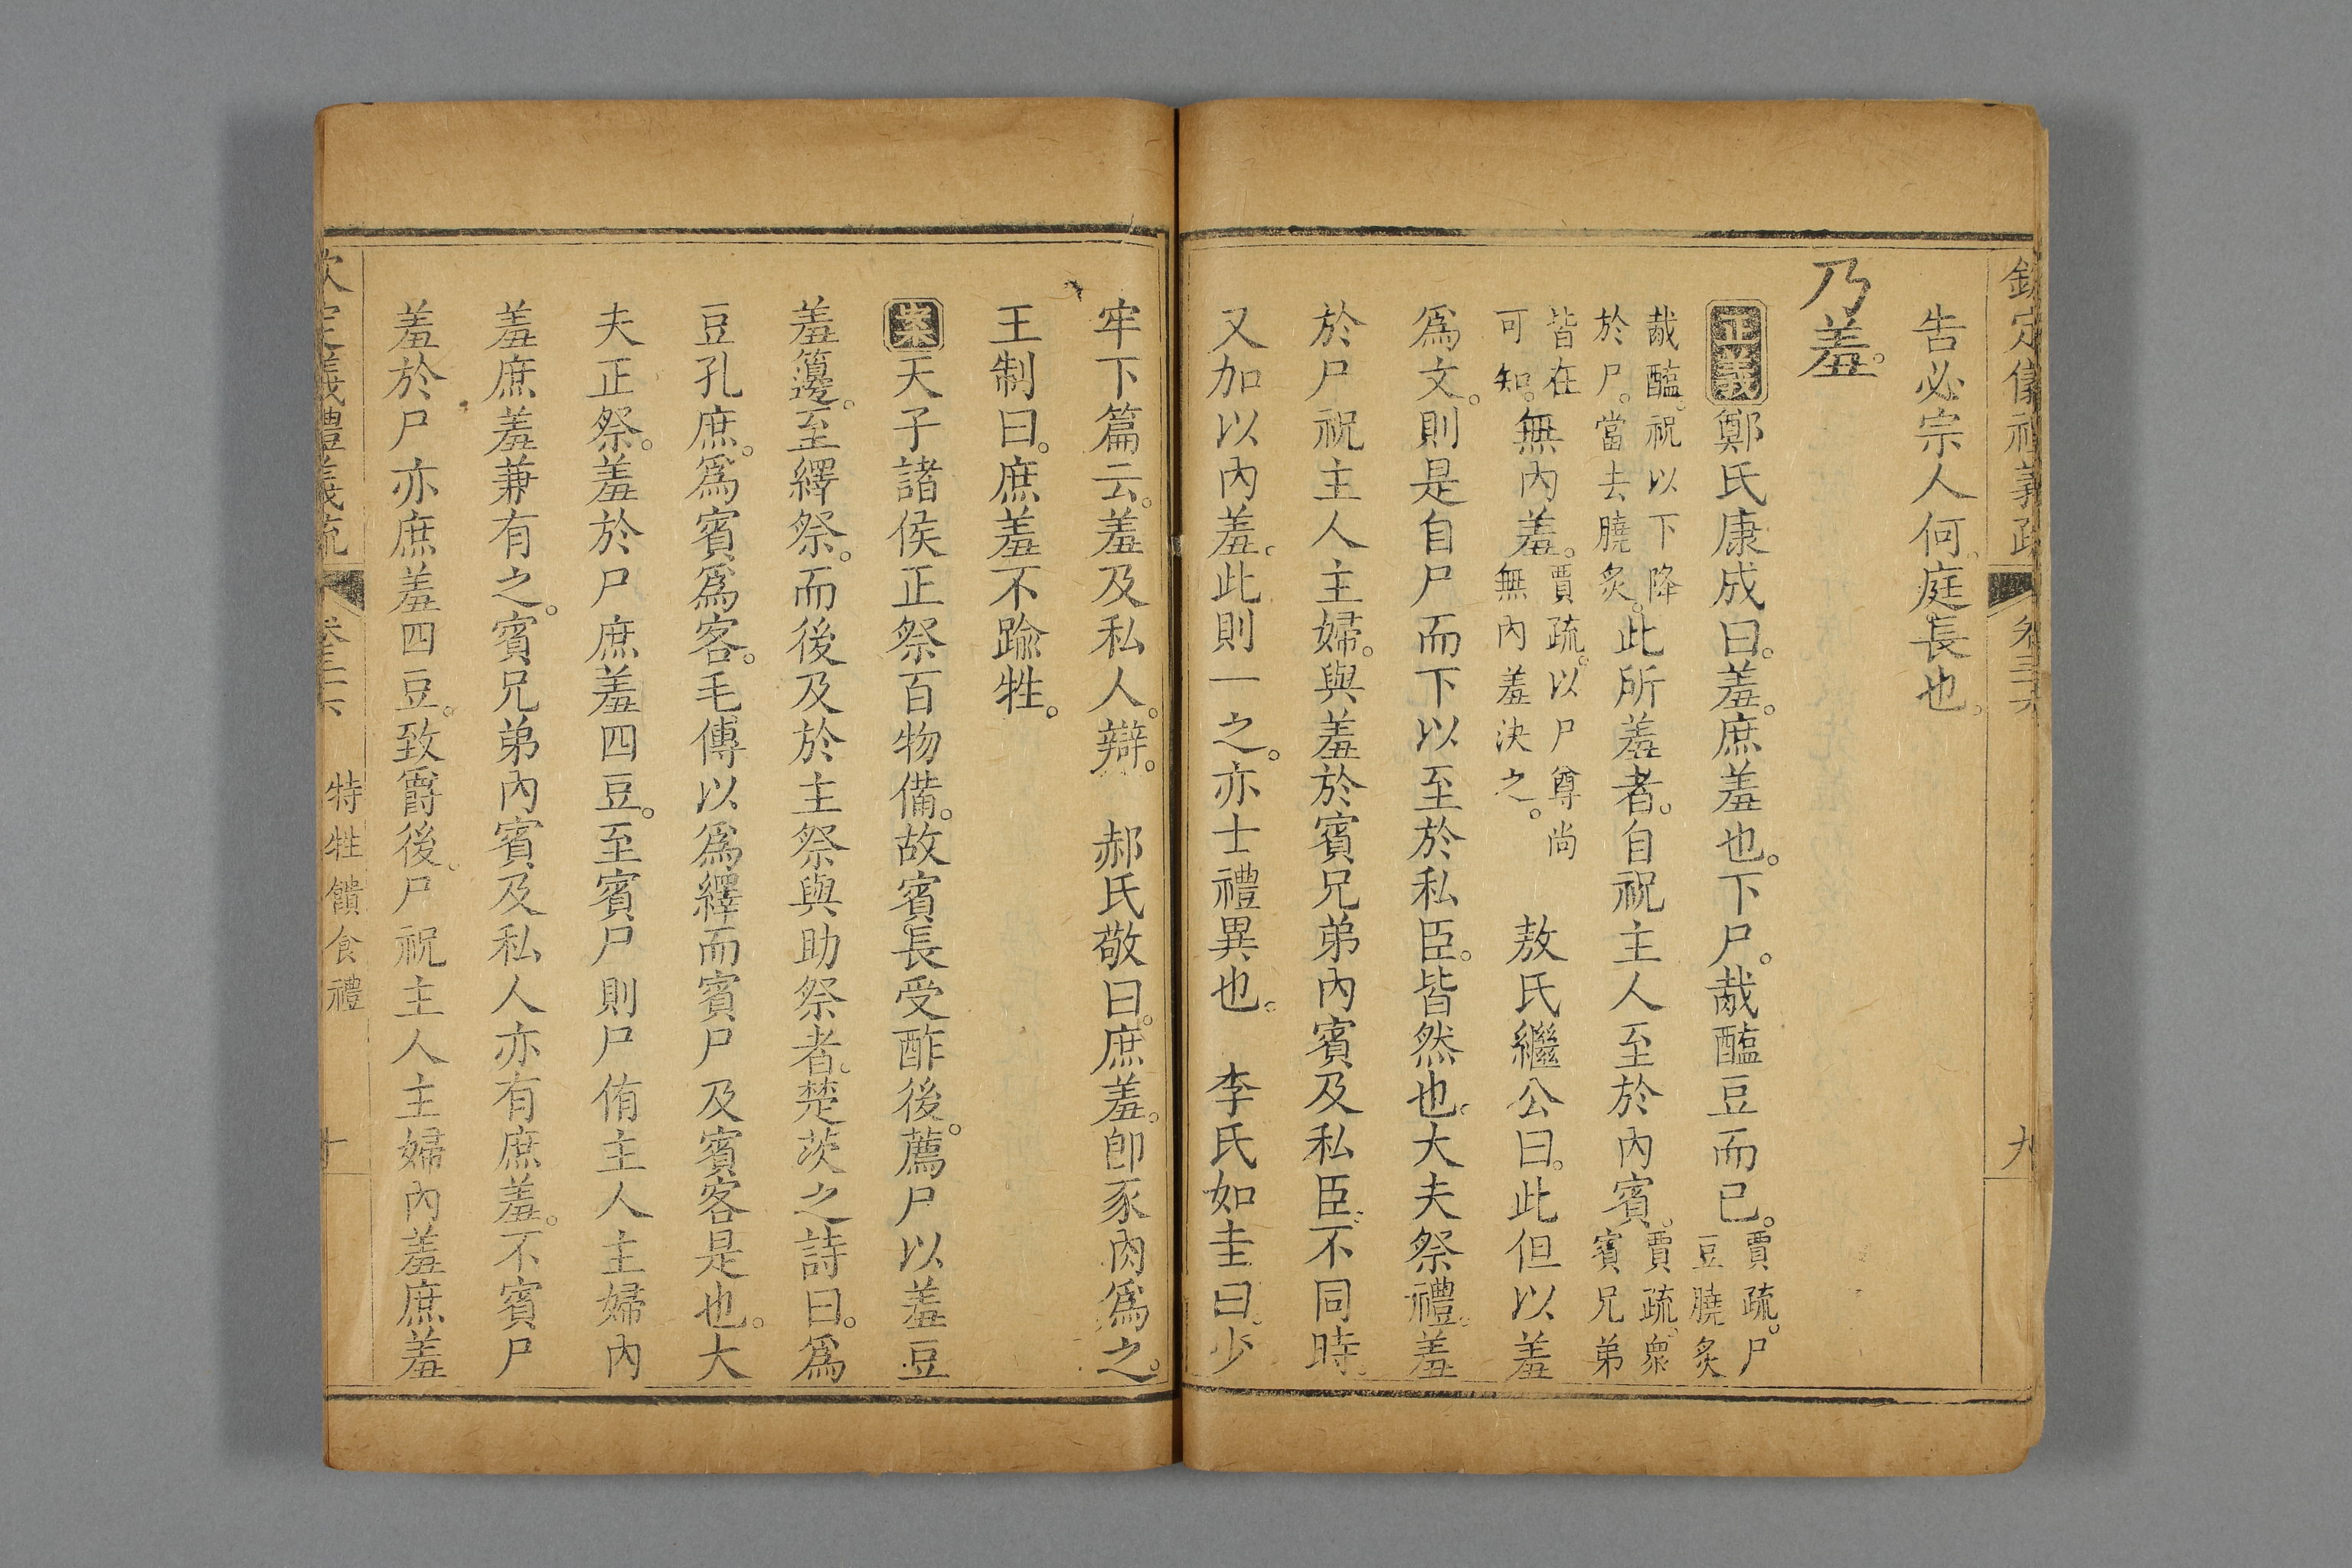 欽定儀禮義疏 卷三十六 九
告必宗人何庭長也。
乃羞。
正義 鄭氏康成曰。羞。庶羞也。下尸。胾醢豆而已。賈疏。尸豆膮炙
胾醢。祝以下降於尸。當去膮炙。此所羞者。自祝主人至於內賓。賈疏。衆賓兄弟
皆在可知。無內羞。賈疏。以尸尊尚無內羞決之。 敖氏繼公曰。此但以羞
爲文。則是自尸而下以至於私臣。皆然也。大夫祭禮。羞
於尸祝主人主婦。與羞於賓兄弟內賓及私臣。不同時。
又加以內羞。此則一之。亦士禮異也。 李氏如圭曰。少
牢下篇云。羞及私人。辯。 郝氏敬曰。庶羞。卽豕肉爲之。
王制曰。庶羞不踰牲。
案 天子諸侯正祭百物備。故賓長受酢後。薦尸以羞豆
羞籩。至繹祭。而後及於主祭與助祭者。楚茨之詩曰。爲
豆孔庶。爲賓爲客。毛傳以爲繹而賓尸及賓客是也。大
夫正祭。羞於尸庶羞四豆。至賓尸則尸侑主人主婦內
羞庶羞兼有之。賓兄弟內賓及私人亦有庶羞。不賓尸
羞於尸亦庶羞四豆。致爵後。尸祝主人主婦內羞庶羞
欽定儀禮義疏 卷三十六 特牲饋食禮 十